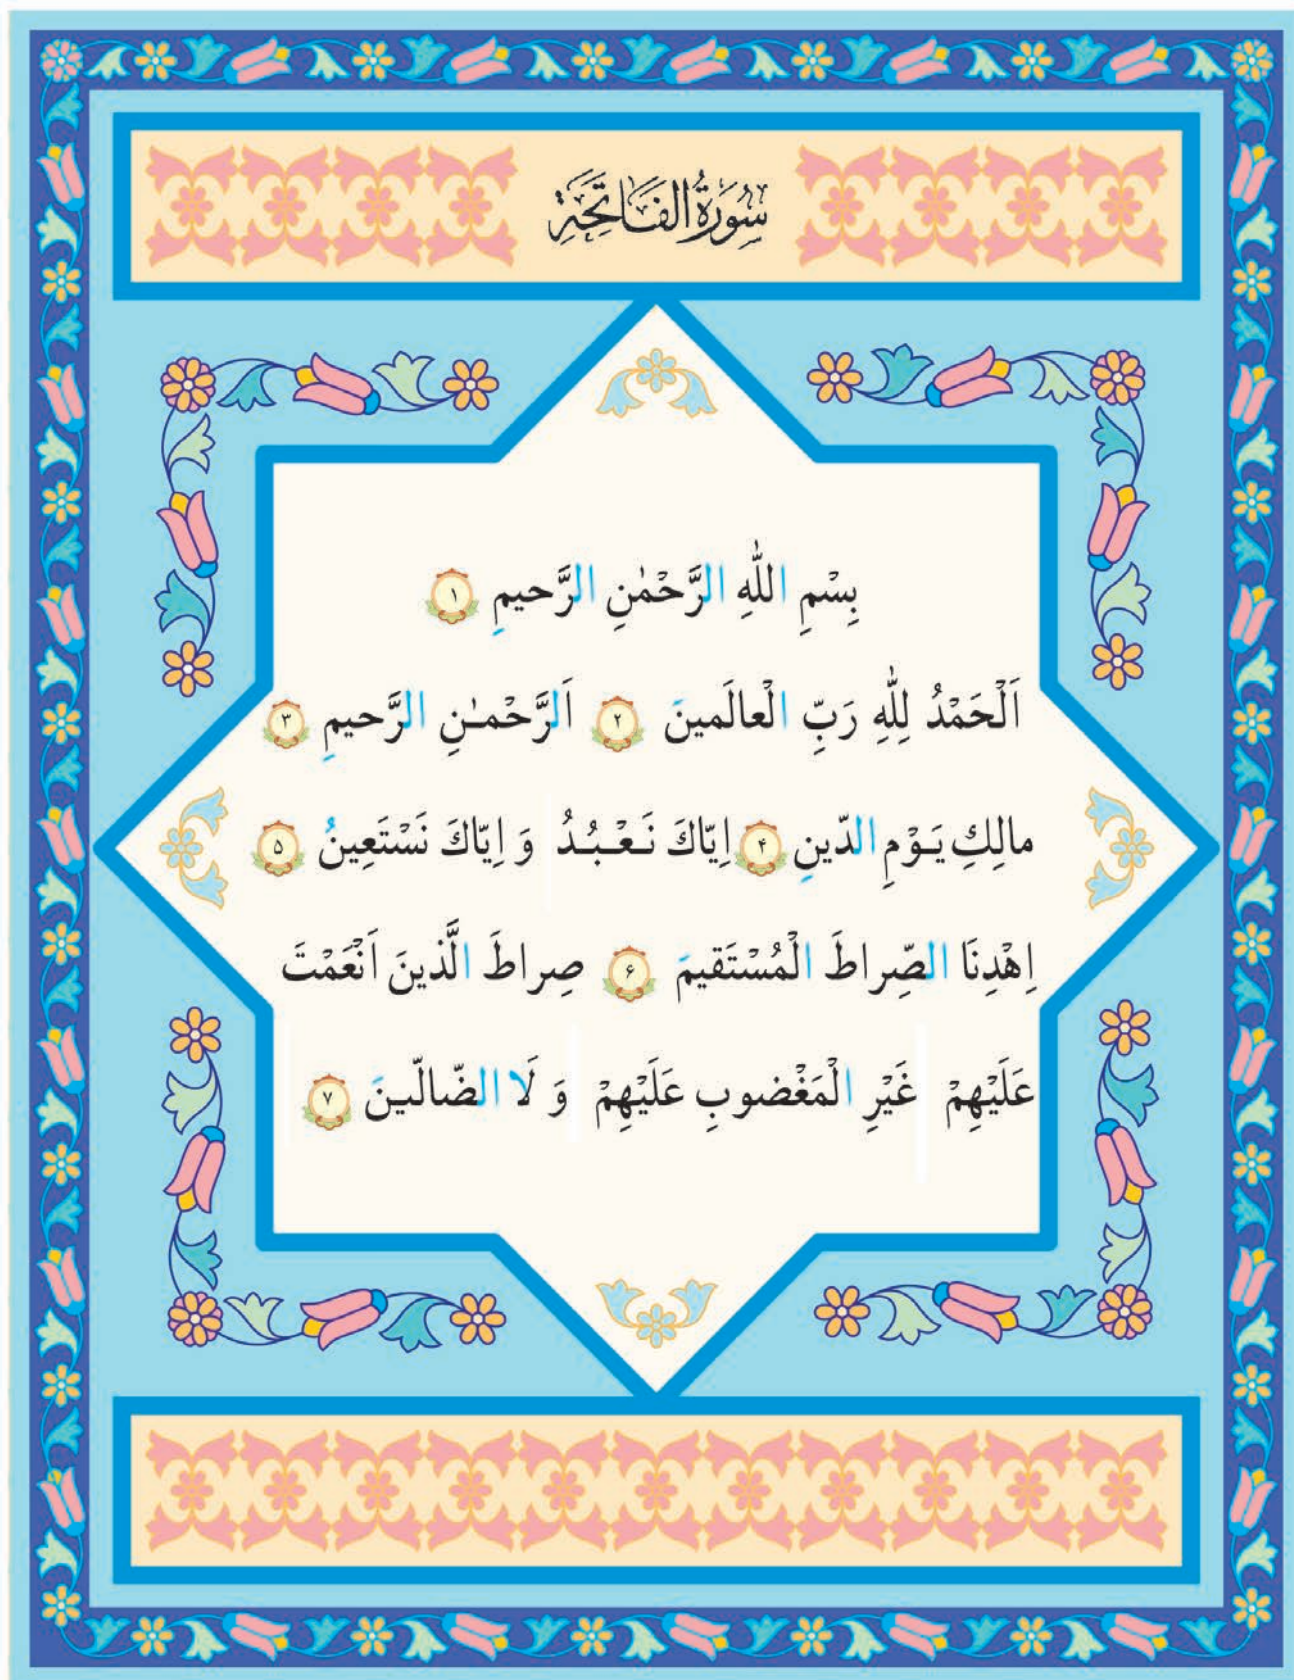 سُورَةُ الفَاتِحَةِ
بِسْمِ اللّٰهِ الرَّحْمٰنِ الرَّحیمِ ۱
اَلْحَمْدُ لِلّٰهِ رَبِّ الْعالَمینَ ۲ اَلرَّحْمـٰنِ الرَّحیمِ ۳
مالِكِ يَـوْمِ الدّینِ ۴ اِیّاكَ نَـعْـبُـدُ وَ اِیّاكَ نَسْتَعِینُ ۵
اِهْدِنَا الصِّراطَ الْمُسْتَقیمَ ۶ صِراطَ الَّذینَ اَنْعَمْتَ
عَلَيْهِمْ غَيْرِ الْمَغْضوبِ عَلَيْهِمْ وَ لَا الضّالّینَ ۷